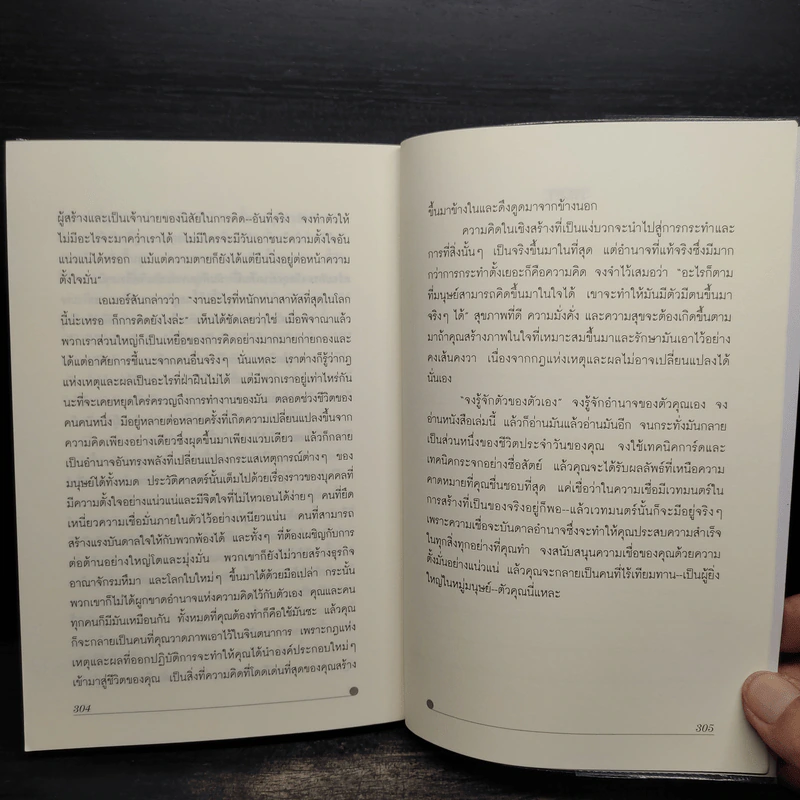 ผู้สร้างและเป็นเจ้านายของนิสัยในการคิด--อันที่จริง จงทำตัวให้
ไม่มีอะไรจะมาคว่ำเราได้ ไม่มีใครจะมีวันเอาชนะความตั้งใจอัน
แน่วแน่ได้หรอก แม้แต่ความตายก็ยังได้แต่ยืนนิ่งอยู่ต่อหน้าความ
ตั้งใจมั่น"
เอเมอร์สันกล่าวว่า "งานอะไรที่หนักหนาสาหัสที่สุดในโลก
นี้น่ะเหรอ ก็การคิดยังไงล่ะ" เห็นได้ชัดเลยว่าใช่ เมื่อพิจารณาแล้ว
พวกเราส่วนใหญ่ก็เป็นเหยื่อของการคิดอย่างมากมายก่ายกองและ
ได้แต่อาศัยการชี้แนะจากคนอื่นจริงๆ นั่นแหละ เราต่างก็รู้ว่ากฎ
แห่งเหตุและผลเป็นอะไรที่ฝ่าฝืนไม่ได้ แต่มีพวกเราอยู่เท่าไหร่กัน
นะที่จะเคยหยุดใคร่ครวญถึงการทำงานของมัน ตลอดช่วงชีวิตของ
คนคนหนึ่ง มีอยู่หลายต่อหลายครั้งที่เกิดความเปลี่ยนแปลงขึ้นจาก
ความคิดเพียงอย่างเดียวซึ่งผุดขึ้นมาเพียงแวบเดียว แล้วก็กลาย
เป็นอำนาจอันทรงพลังที่เปลี่ยนแปลงกระแสเหตุการณ์ต่างๆ ของ
มนุษย์ได้ทั้งหมด ประวัติศาสตร์นั้นเต็มไปด้วยเรื่องราวของบุคคลที่
มีความตั้งใจอย่างแน่วแน่และมีจิตใจที่ไม่ไหวเอนได้ง่ายๆ คนที่ยึด
เหนี่ยวความเชื่อมั่นภายในตัวไว้อย่างเหนียวแน่น คนที่สามารถ
สร้างแรงบันดาลใจให้กับพวกพ้องได้ และทั้งๆ ที่ต้องเผชิญกับการ
ต่อต้านอย่างใหญ่โตและมุ่งมั่น พวกเขาก็ยังไม่วายสร้างธุรกิจ
อาณาจักรมหึมา และโลกใบใหม่ๆ ขึ้นมาได้ด้วยมือเปล่า กระนั้น
พวกเขาก็ไม่ได้ผูกขาดอำนาจแห่งความคิดไว้กับตัวเอง คุณและคน
ทุกคนก็มีมันเหมือนกัน ทั้งหมดที่คุณต้องทำก็คือใช้มันซะ แล้วคุณ
ก็จะกลายเป็นคนที่คุณวาดภาพเอาไว้ในจินตนาการ เพราะกฎแห่ง
เหตุและผลที่ออกปฏิบัติการจะทำให้คุณได้นำองค์ประกอบใหม่ๆ
เข้ามาสู่ชีวิตของคุณ เป็นสิ่งที่ความคิดที่โดดเด่นที่สุดของคุณสร้าง
304
ขึ้นมาข้างในและดึงดูดมาจากข้างนอก
ความคิดในเชิงสร้างที่เป็นแง่บวกจะนำไปสู่การกระทำและ
การที่สิ่งนั้นๆ เป็นจริงขึ้นมาในที่สุด แต่อำนาจที่แท้จริงซึ่งมีมาก
กว่าการกระทำตั้งเยอะก็คือความคิด จงจำไว้เสมอว่า "อะไรก็ตาม
ที่มนุษย์สามารถคิดขึ้นมาในใจได้ เขาจะทำให้มันมีตัวมีตนขึ้นมา
จริงๆ ได้" สุขภาพที่ดี ความมั่งคั่ง และความสุขจะต้องเกิดขึ้นตาม
มาถ้าคุณสร้างภาพในใจที่เหมาะสมขึ้นมาและรักษามันเอาไว้อย่าง
คงเส้นคงวา เนื่องจากกฎแห่งเหตุและผลไม่อาจเปลี่ยนแปลงได้
นั่นเอง
"จงรู้จักตัวของตัวเอง" จงรู้จักอำนาจของตัวคุณเอง จง
อ่านหนังสือเล่มนี้ แล้วก็อ่านมันแล้วอ่านมันอีก จนกระทั่งมันกลาย
เป็นส่วนหนึ่งของชีวิตประจำวันของคุณ จงใช้เทคนิคการ์ดและ
เทคนิคกระจกอย่างซื่อสัตย์ แล้วคุณจะได้รับผลลัพธ์ที่เหนือความ
คาดหมายที่คุณชื่นชอบที่สุด แค่เชื่อว่าในความเชื่อมีเวทมนตร์ใน
การสร้างที่เป็นของจริงอยู่ก็พอ--แล้วเวทมนตร์นั้นก็จะมีอยู่จริงๆ
เพราะความเชื่อจะบันดาลอำนาจซึ่งจะทำให้คุณประสบความสำเร็จ
ในทุกสิ่งทุกอย่างที่คุณทำ จงสนับสนุนความเชื่อของคุณด้วยความ
ตั้งมั่นอย่างแน่วแน่ แล้วคุณจะกลายเป็นคนที่ไร้เทียมทาน--เป็นผู้ยิ่ง
ใหญ่ในหมู่มนุษย์--ตัวคุณนี่แหละ
305